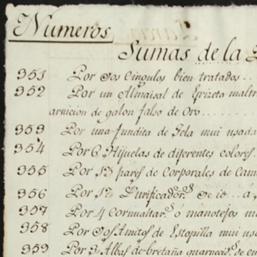 Numeros
Sumas de la
951 Por dos Cingulos bien tratados
952 Por un Almaisal de
arnicion de galon falso de Oro
953 Por una fundita de Tela mui usada
954 Por 6 Hijuelas de diferentes colores
955 Por 12 pares de Corporales de Cam
956 Por 12 Purificador.s
957 Por 4 Cornualtar.s o manotejos
958 Por dos Amitos de Estopilla mui us
959 Por 3 Albas de bretaña